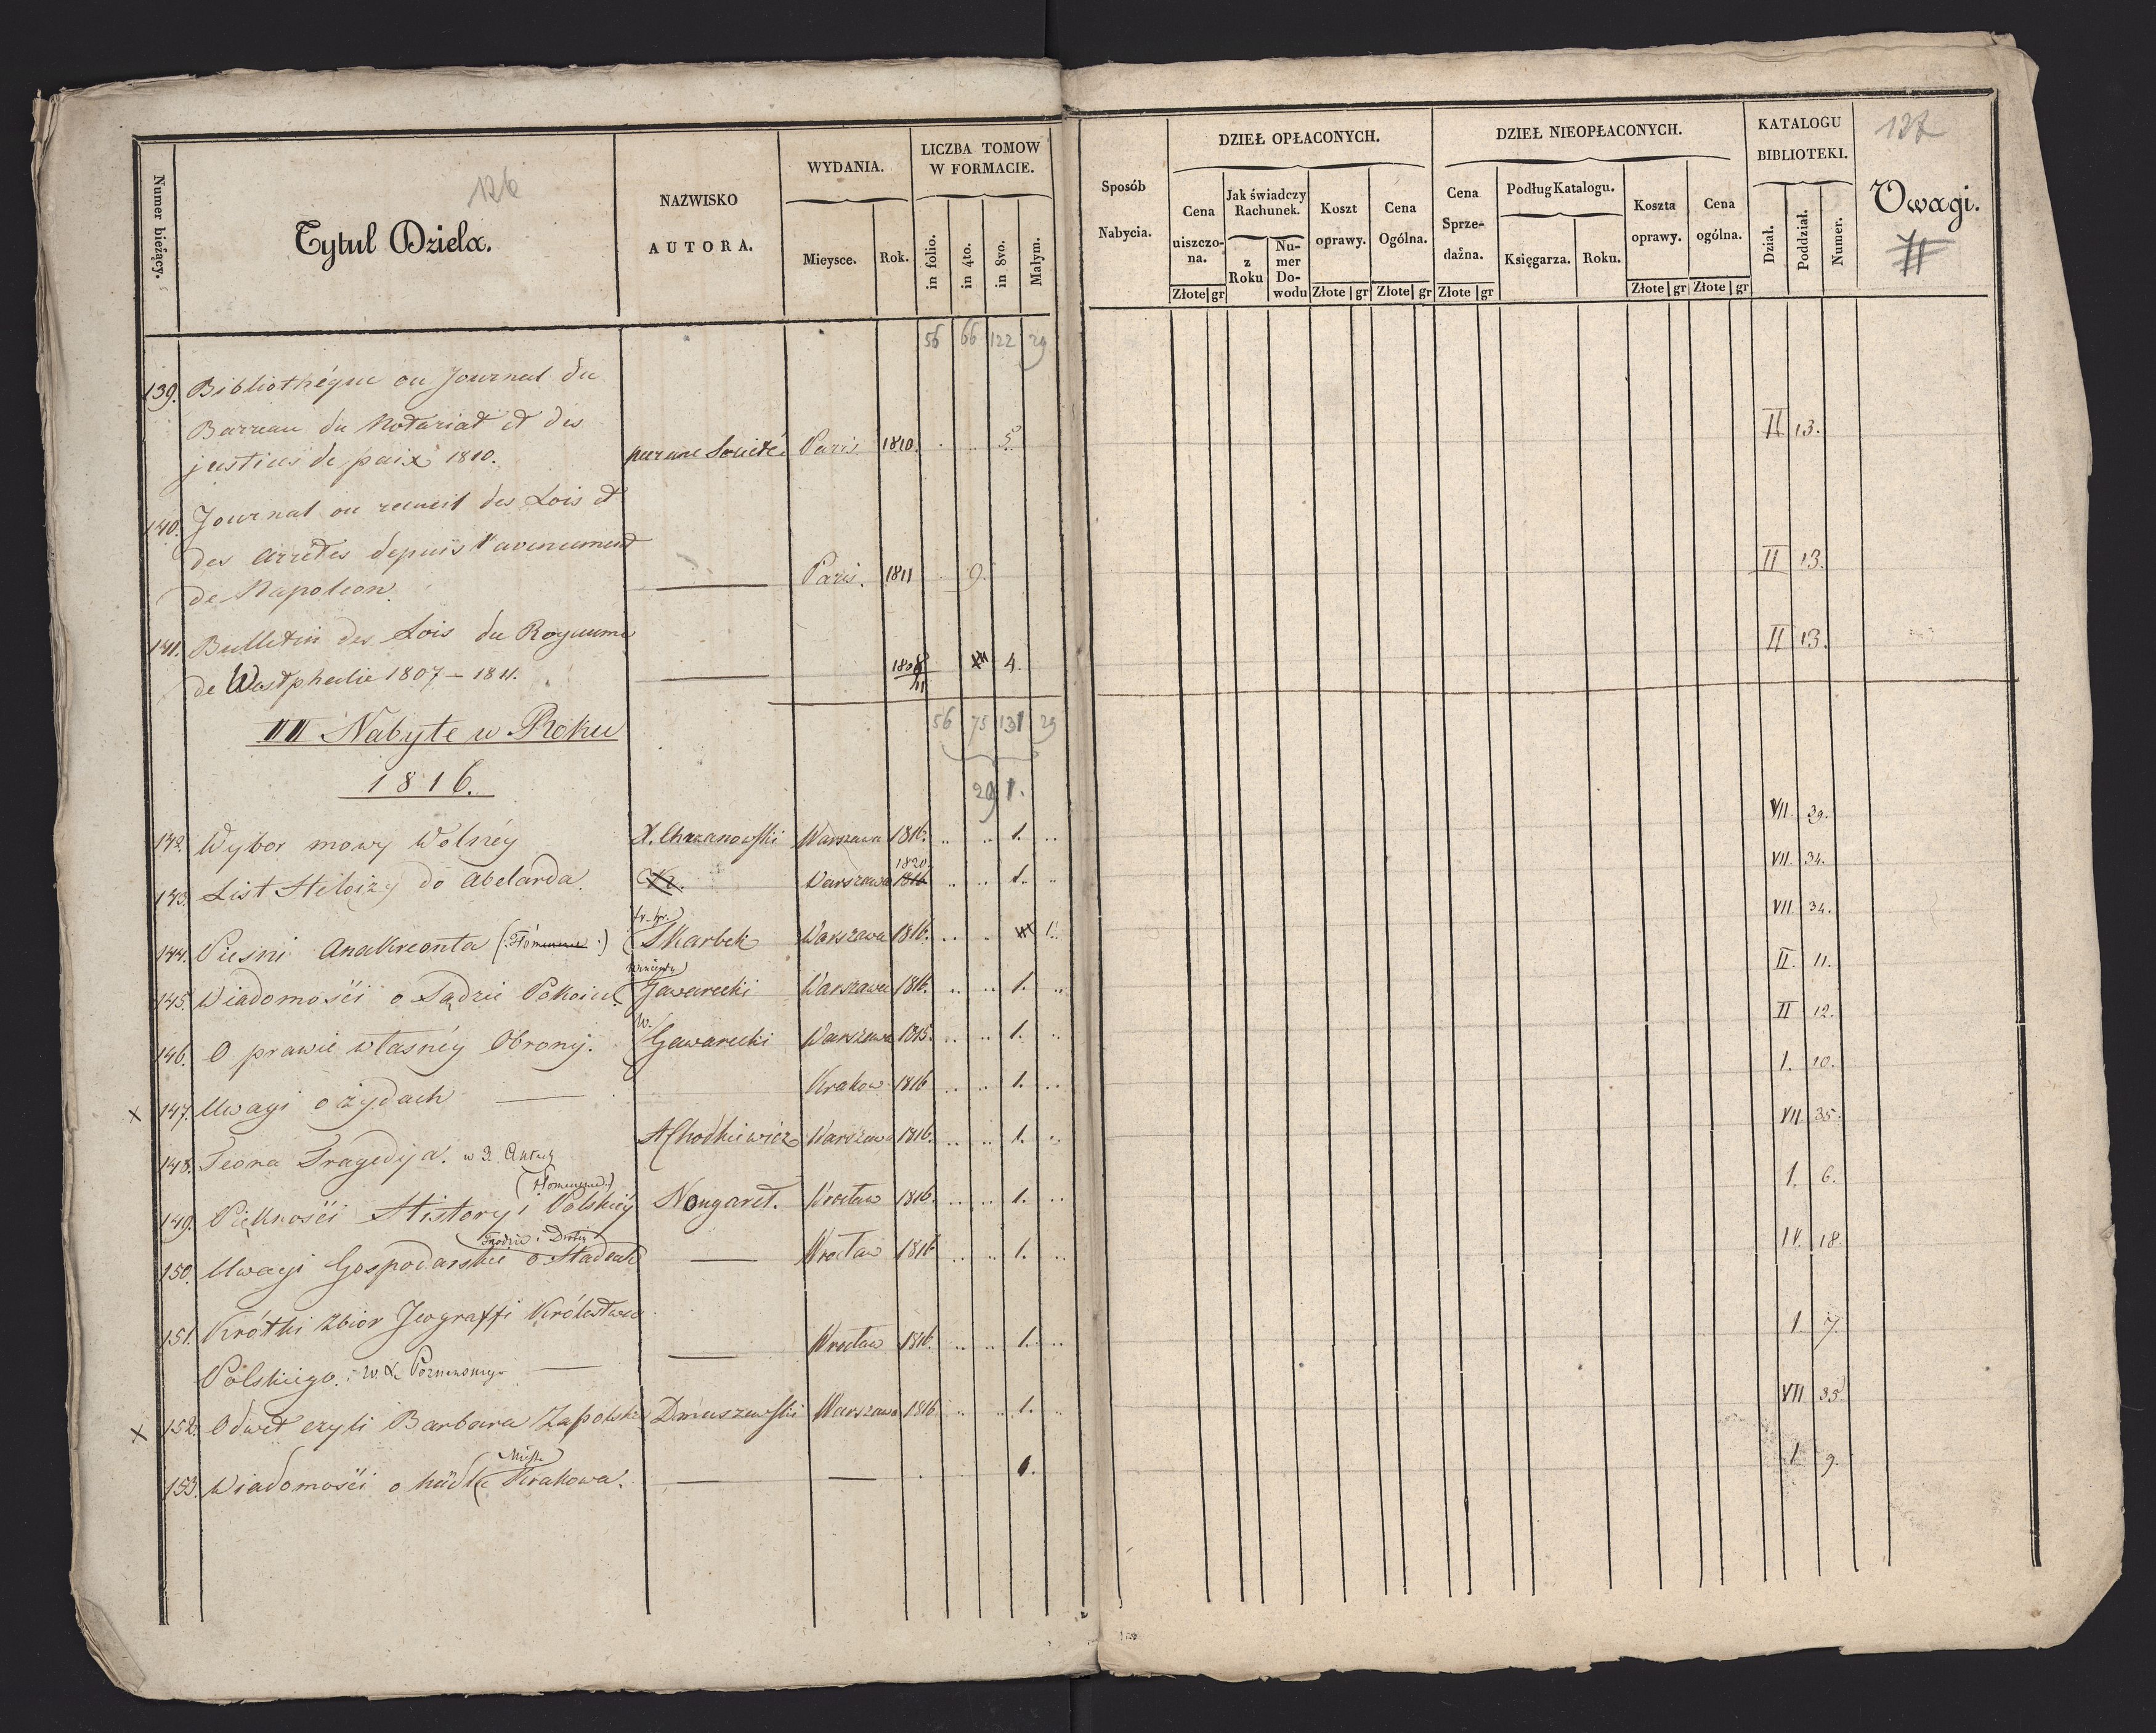 Numer bieżący.
126
Tytuł Dzieła.
NAZWISKO
AUTORA.
WYDANIA.
Mieysce.
Rok.
LICZBA TOMOW
W FORMACIE.
in folio.
in 4to.
in 8vo.
Małym.
56 66 122 29
139. Bibliothéque ou Journal du
Barreau du Notariat et des
justices de paix 1810. par une Societé. Paris 1810. 5.
140. Journal ou recueil des Lois et
des arretes depuis l'avenument
de Napoleon. Paris. 1811 9.
141. Bulletin des Lois du Royaume
de Westphalie 1807 – 1811. 4.
56 75 131 29
III Nabyte w Roku
1816.
291.
142. Wybor mowy Wolnéy X. Chrzanowski Warszawa 1816. 1.
1820.
143. List Heloizy do Abelarda. Warszawa 1816 1.
fr. hr.
144. Piesni Anakreonta Skarbek Warszawa 1816. 1.
Wincenty
145. Wiadomości o Sądzie Pokoiu. Gawarecki Warszawa 1816. 1.
W.
146. O prawie własnéy Obrony. Gawarecki Warszawa 1815. 1.
x 147. Uwagi o żydach Krakow 1816 1.
148. Teona Tragedyja. w 5. Aktach A Chodkiewicz Warszawa 1816. 1.
(tłomaczone.)
149. Piękności Historyi Polskiéy Nougaret. Wrocław 1816. 1.
150. Uwagi Gospodarskie o Stadach Wrocław 1816 1.
151. Krótki Zbior Jeograffi Królestwa
Polskiego. w. X. Poznanskiego Wrocław 1816. 1.
x 152. Odwet czyli Barbara Zapolska Dmuszewski Warszawa 1816 1.
Miasta
153. Wiadomości o Krakowa. 1.
Sposób
Nabycia.
DZIEŁ OPŁACONYCH.
Cena
uiszczo-
na.
Złote gr
Jak świadczy
Rachunek.
z
Roku
Nu-
mer
Do-
wodu
Koszt
oprawy.
Złote gr
Cena
Ogólna.
Złote gr
DZIEŁ NIEOPŁACONYCH.
Cena
Sprze-
dażna.
Złote gr
Podług Katalogu.
Księgarza.
Roku.
Koszta
oprawy.
Złote gr
Cena
ogólna.
Złote gr
KATALOGU
BIBLIOTEKI.
Dział.
Poddział.
Numer.
127
Uwagi.
II 13.
II 13.
II 13.
VII. 39.
VII. 34.
VII. 34.
II. 11.
II 12.
I. 10.
VII 35.
I. 6.
IV. 18.
I. 7.
VII 35.
I 9.